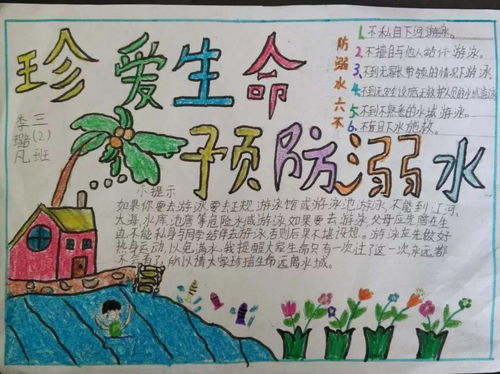 珍爱生命
预防溺水
三(2)班
李璐凡
防溺水六不
1.不私自下河游泳。
2.不擅自与他人结伴游泳。
3.不到无家长带领的情况下游泳
4.不到无安全设施无救护人员的水域游泳
5.不到不熟悉的水域游泳。
6.不盲目下水施救。
小提示
如果你要去游泳要去正规游泳馆或游泳池游泳,不能到江河、
大海、水库、池塘等危险水域游泳。如果要去游泳父母应先陪在身
边不能私自与同学结伴去游泳否则后果不堪设想。游泳应先做好
热身运动,以免溺水。我提醒大家生命只有一次过了这一次永远都
不会有了,所以请大家珍惜生命远离水域。